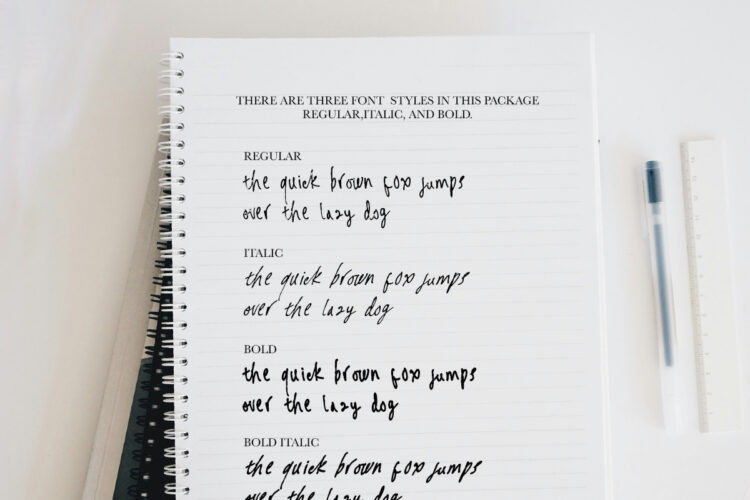 THERE ARE THREE FONT STYLES IN THIS PACKAGE
REGULAR,ITALIC, AND BOLD.
REGULAR
the quick brown fox jumps
over the lazy dog
ITALIC
the quick brown fox jumps
over the lazy dog
BOLD
the quick brown fox jumps
over the lazy dog
BOLD ITALIC
the quick brown fox jumps
over the lazy dog